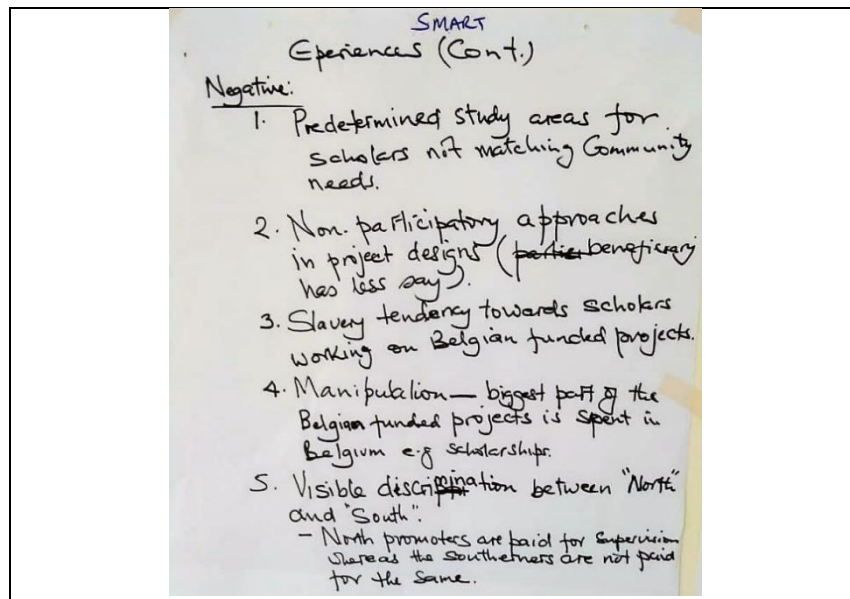 SMART
Eperiences (Cont.)
Negative:
1. Predetermined study areas for
scholars not matching Community
needs.
2. Non-participatory approaches
in project designs (beneficiary
has less say).
3. Slavery tendency towards scholars
working on Belgian funded projects.
4. Manipulation — biggest part of the
Belgian funded projects is spent in
Belgium e.g scholarships.
5. Visible discrimination between "North"
and "South".
- North promoters are paid for supervision
whereas the southerners are not paid
for the same.